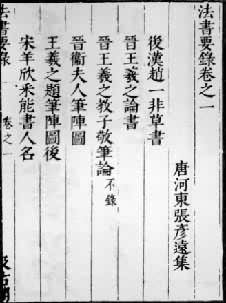 法書要錄卷之一
唐河東張彥遠集
後漢趙一非草書
晉王羲之論書
晉王羲之教子敬筆論不錄
晉衞夫人筆陣圖
王羲之題筆陣圖後
宋羊欣采能書人名
法書要錄
卷之一